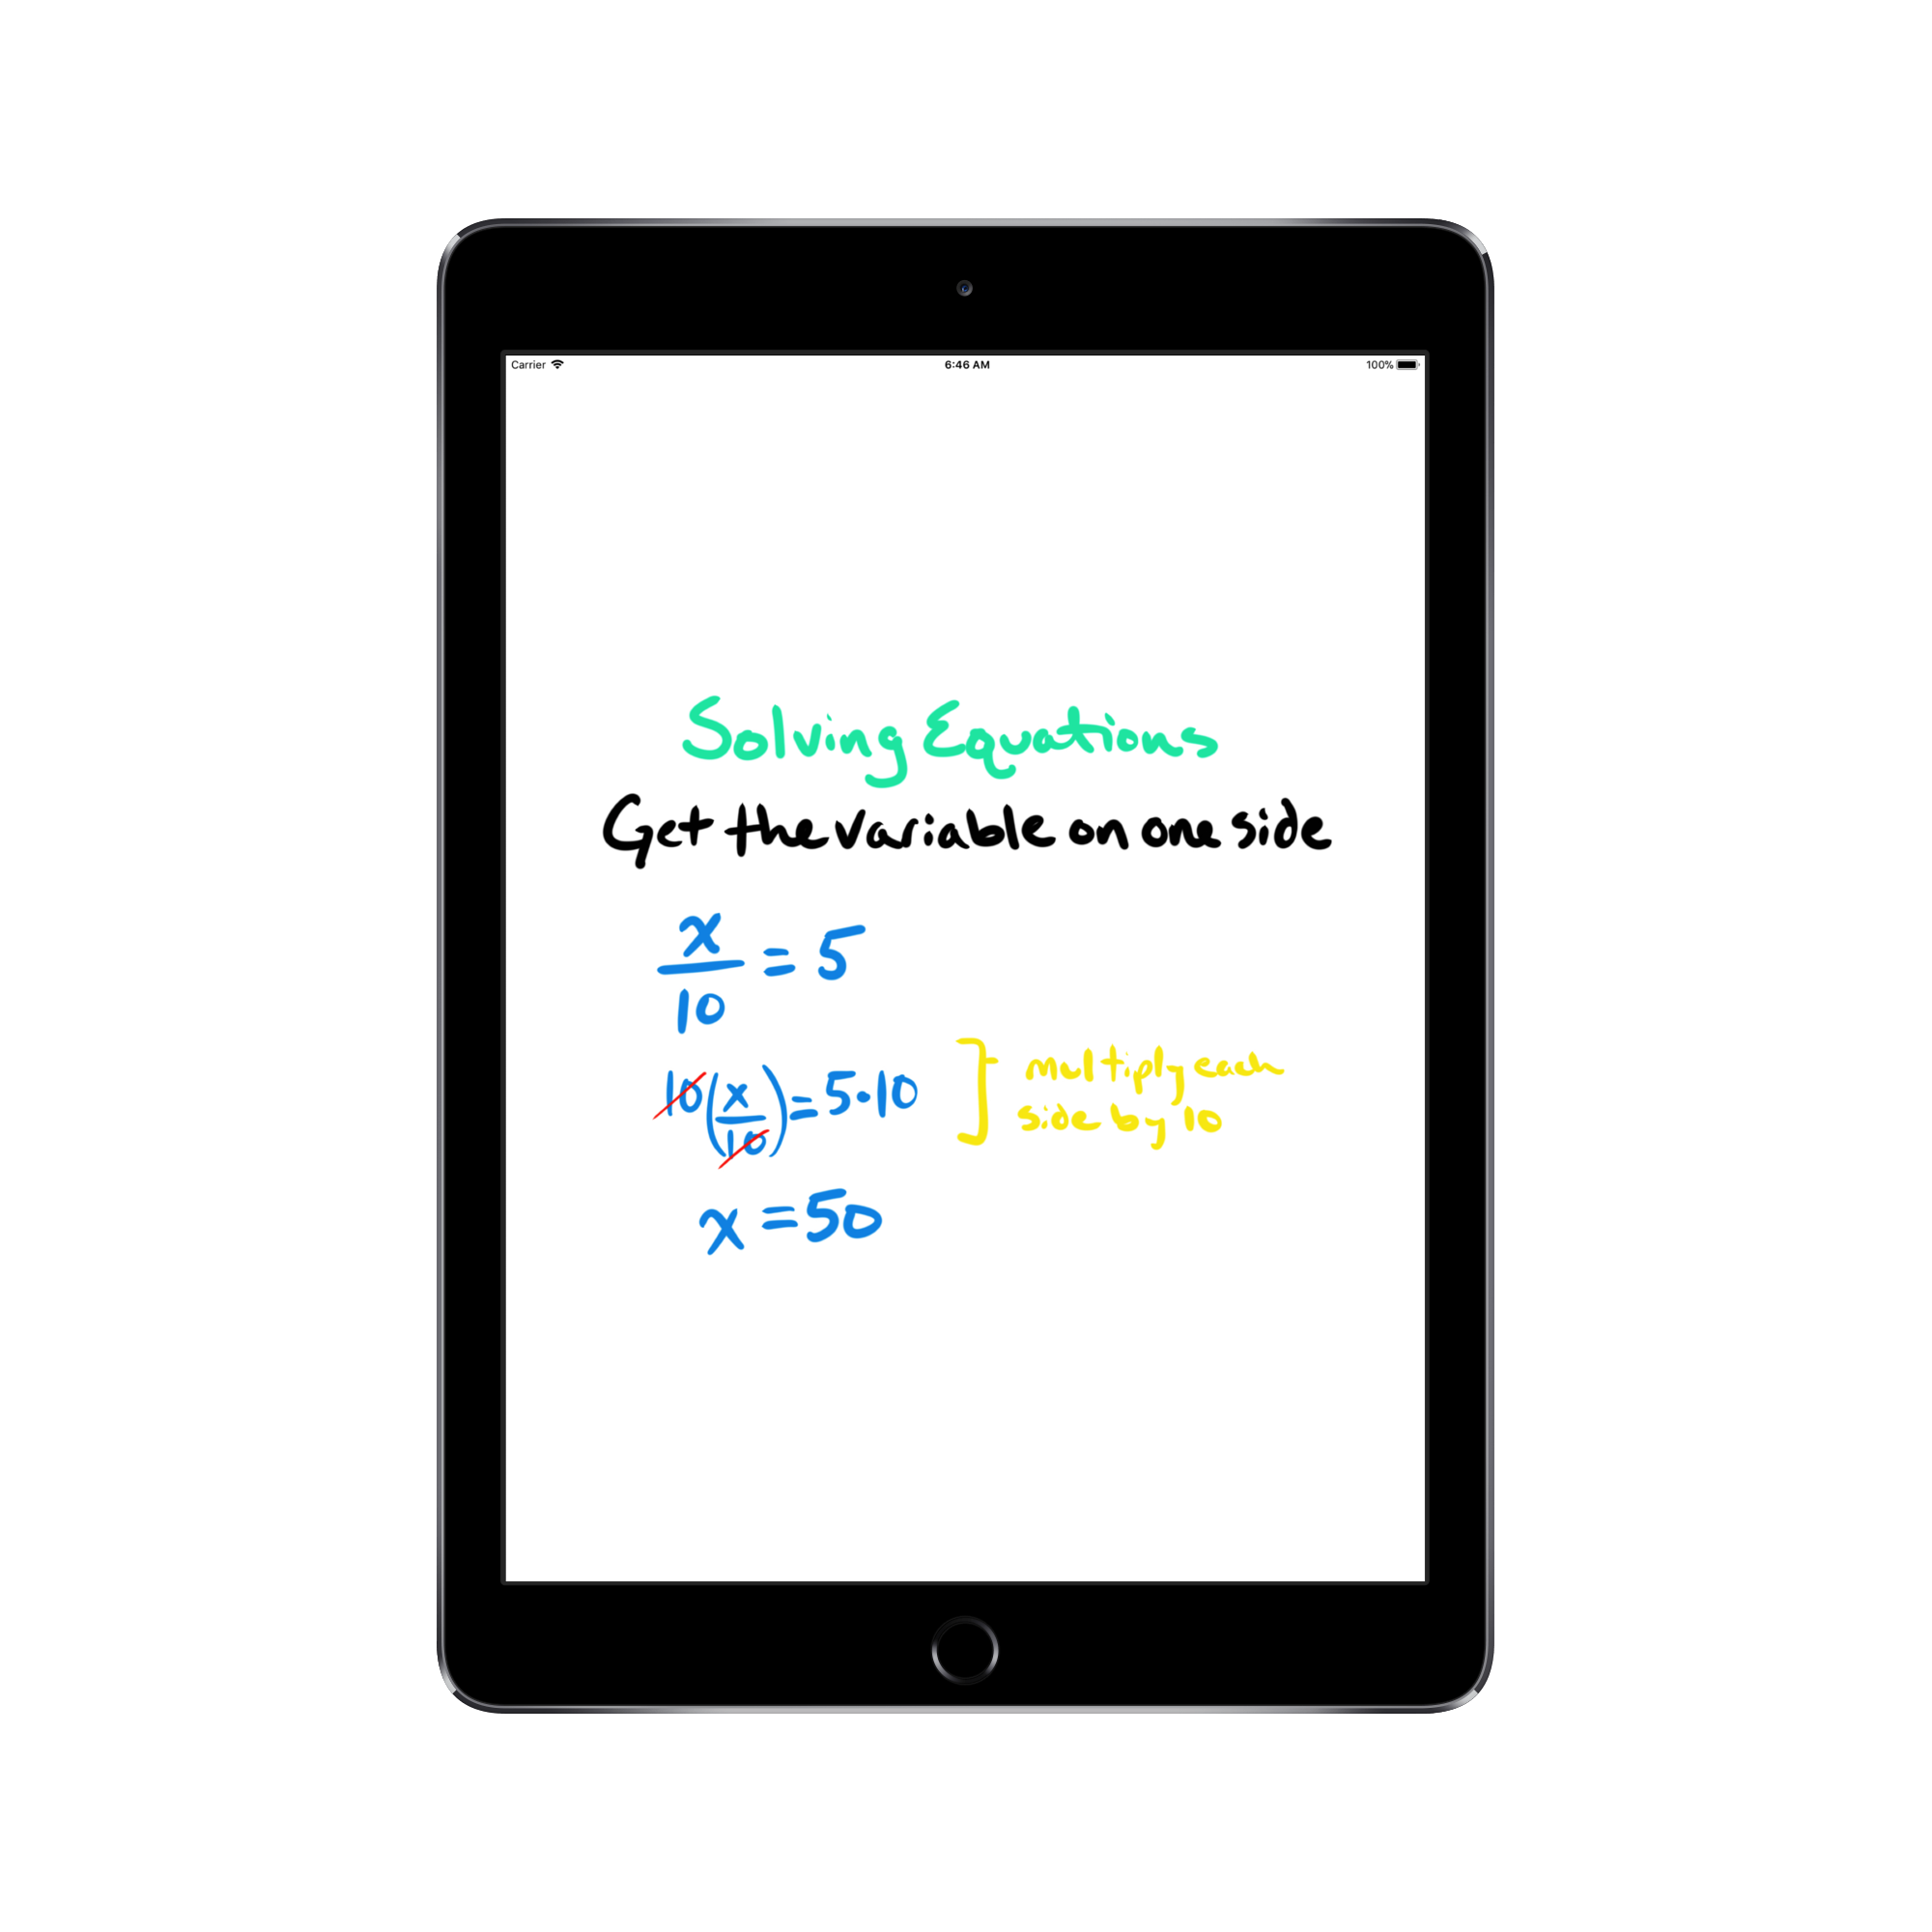 Carrier 6:46 AM 100%
Solving Equations
Get the variable on one side
x/10 = 5
10(x/10) = 5·10 } multiply each
side by 10
x = 50